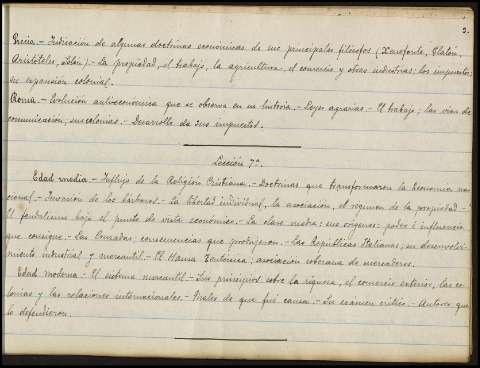 3.
Grecia.- Indicación de algunas doctrinas económicas de sus principales filósofos (Xenofonte, Platón,
Aristóteles, Solon).- La propiedad, el trabajo, la agricultura, el comercio y otras industrias; los impuestos;
su expansión colonial.
Roma.- Evolución económica que se observa en su historia.- Leyes agrarias.- El trabajo; las vías de
comunicación; sus colonias.- Desarrollo de sus impuestos.
Lección 7ª.
Edad media.- Influjo de la Religión Cristiana.- Doctrinas que transformaron la economía na-
cional.- Invasión de los bárbaros.- La libertad individual, la asociación, el régimen de la propiedad.-
El feudalismo bajo el punto de vista económico.- La clase media: sus orígenes: poder é influencia
que consigue.- Las Cruzadas; consecuencias que produjeron.- Las Repúblicas Italianas; su desenvolvi-
miento industrial y mercantil.- El Hansa Teutónica; asociación soberana de mercaderes.
Edad moderna.- El sistema mercantil.- Sus principios sobre la riqueza, el comercio exterior, las co-
lonias y las relaciones internacionales.- Males de que fué causa.- Su examen crítico.- Autores que
lo defendieron.